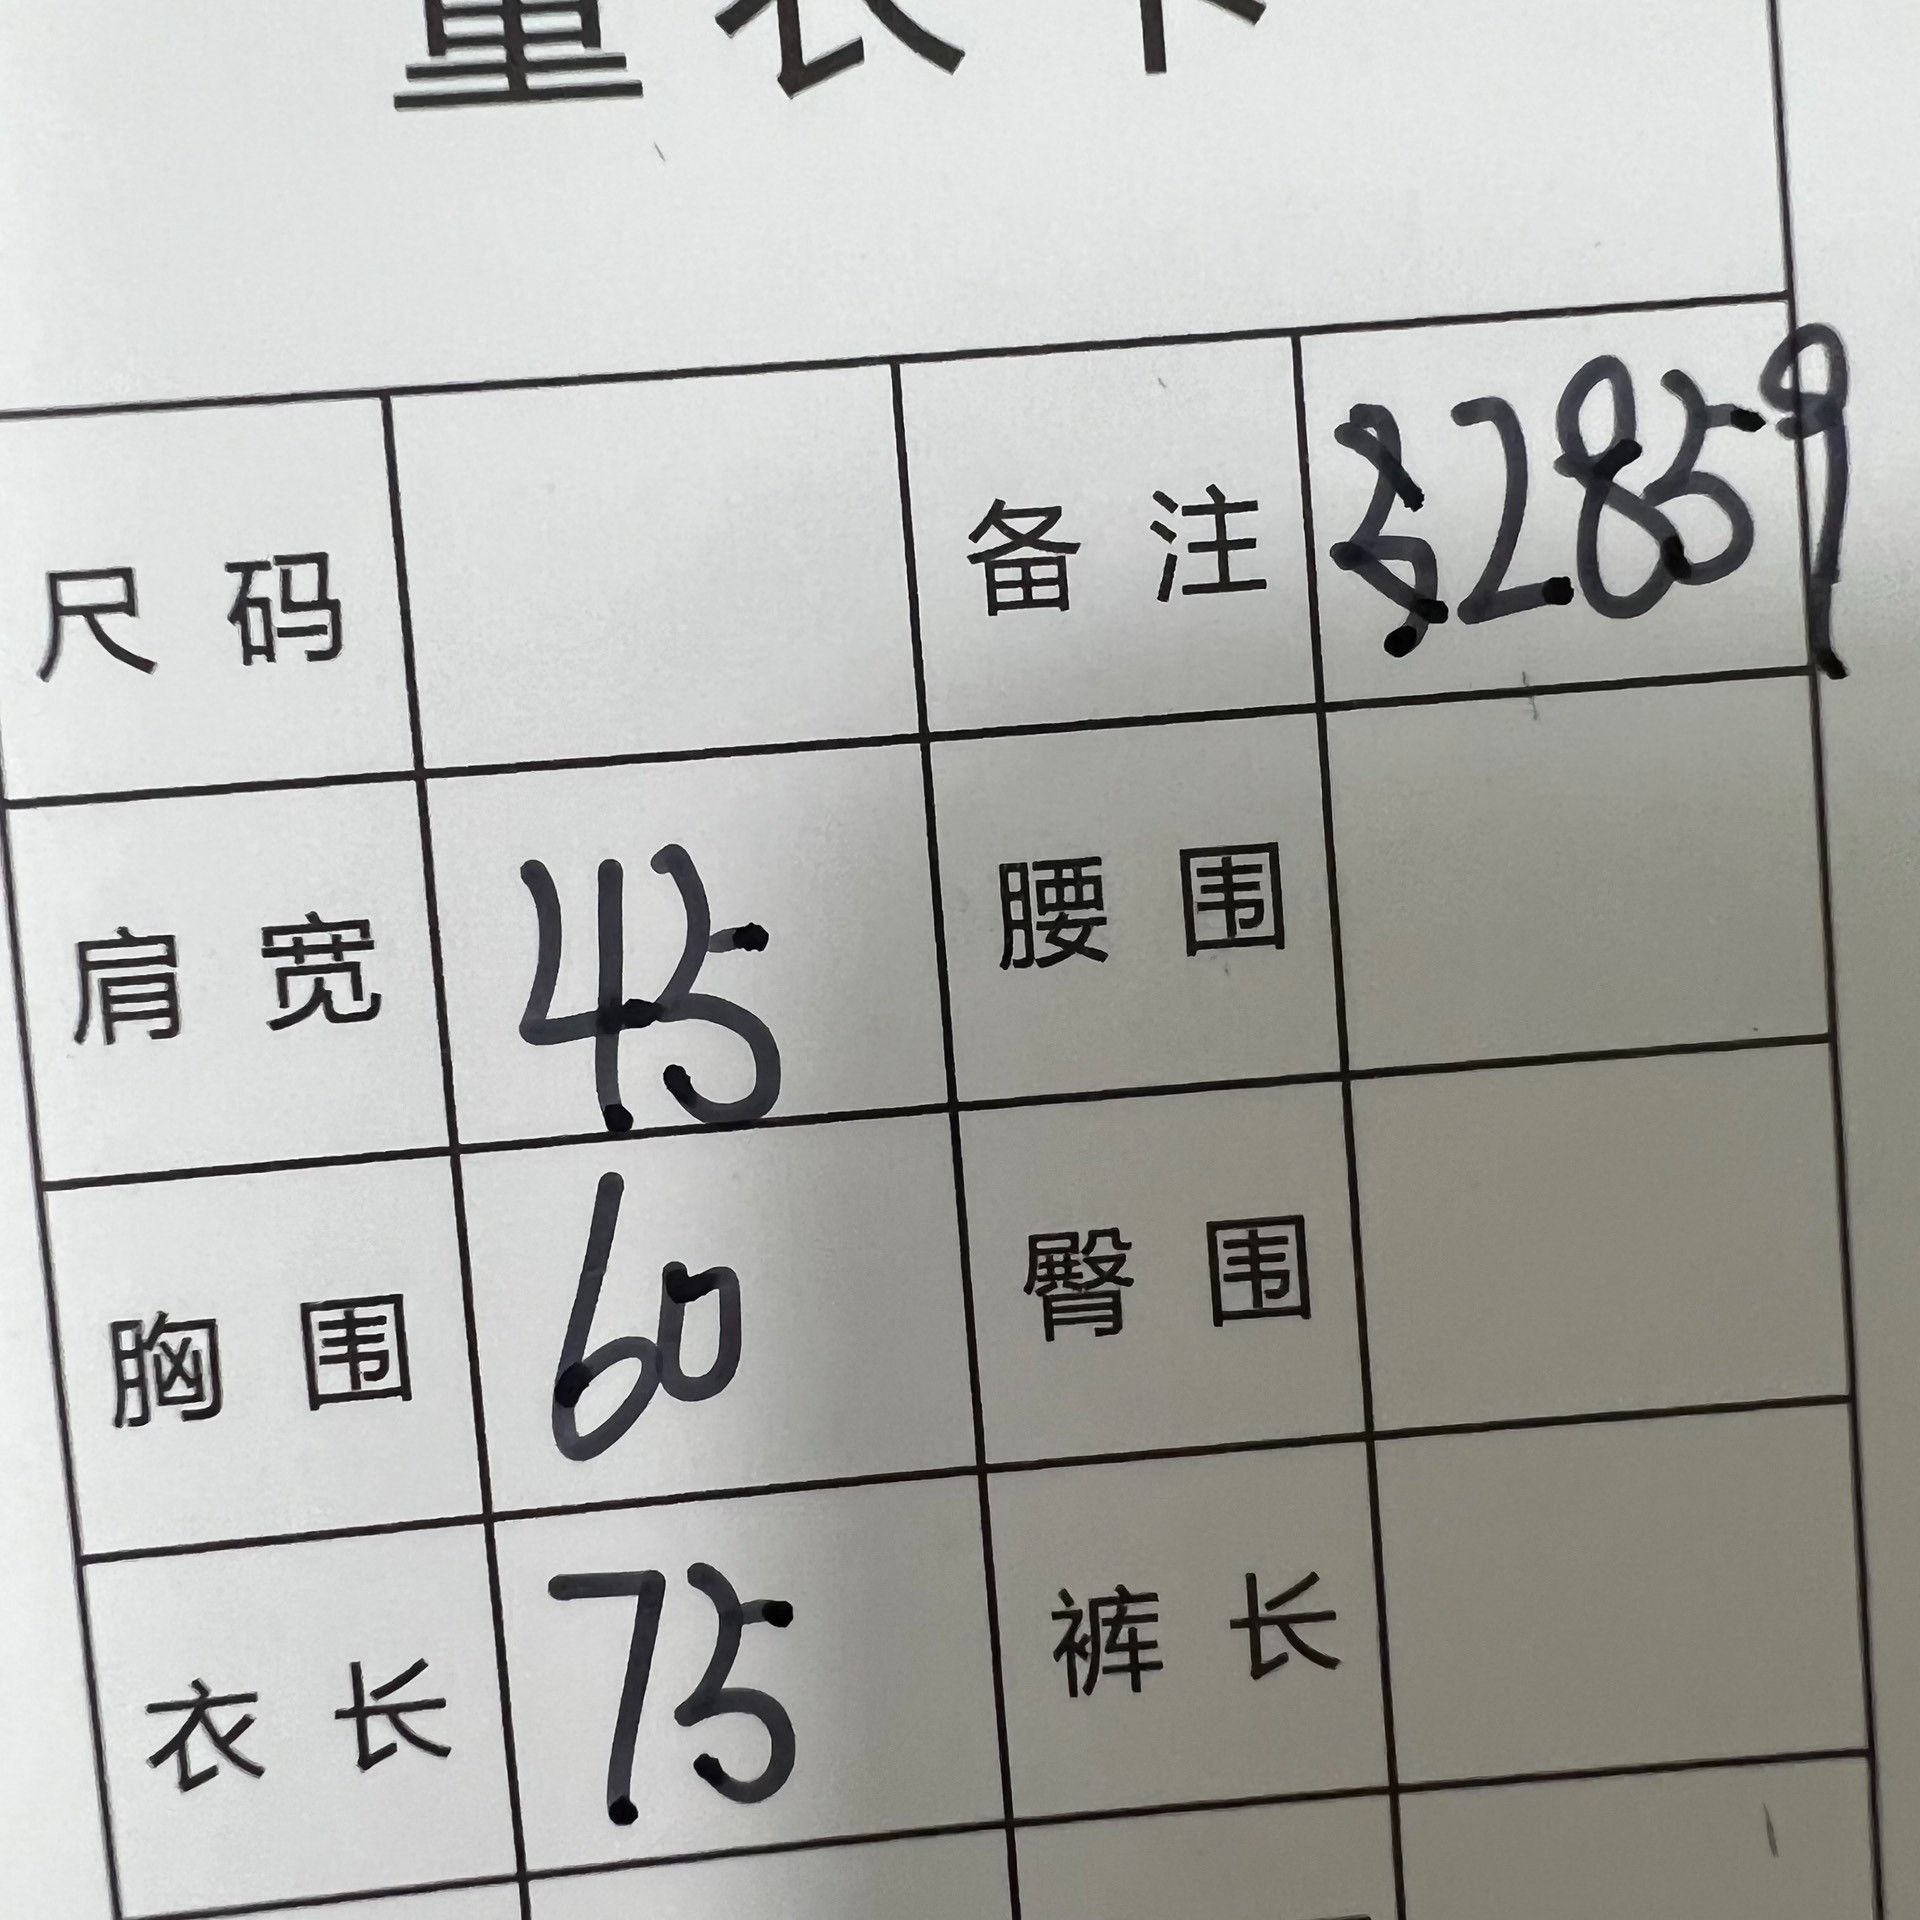 量衣卡
尺码 备注 S2859
肩宽 45 腰围
胸围 60 臀围
衣长 75 裤长